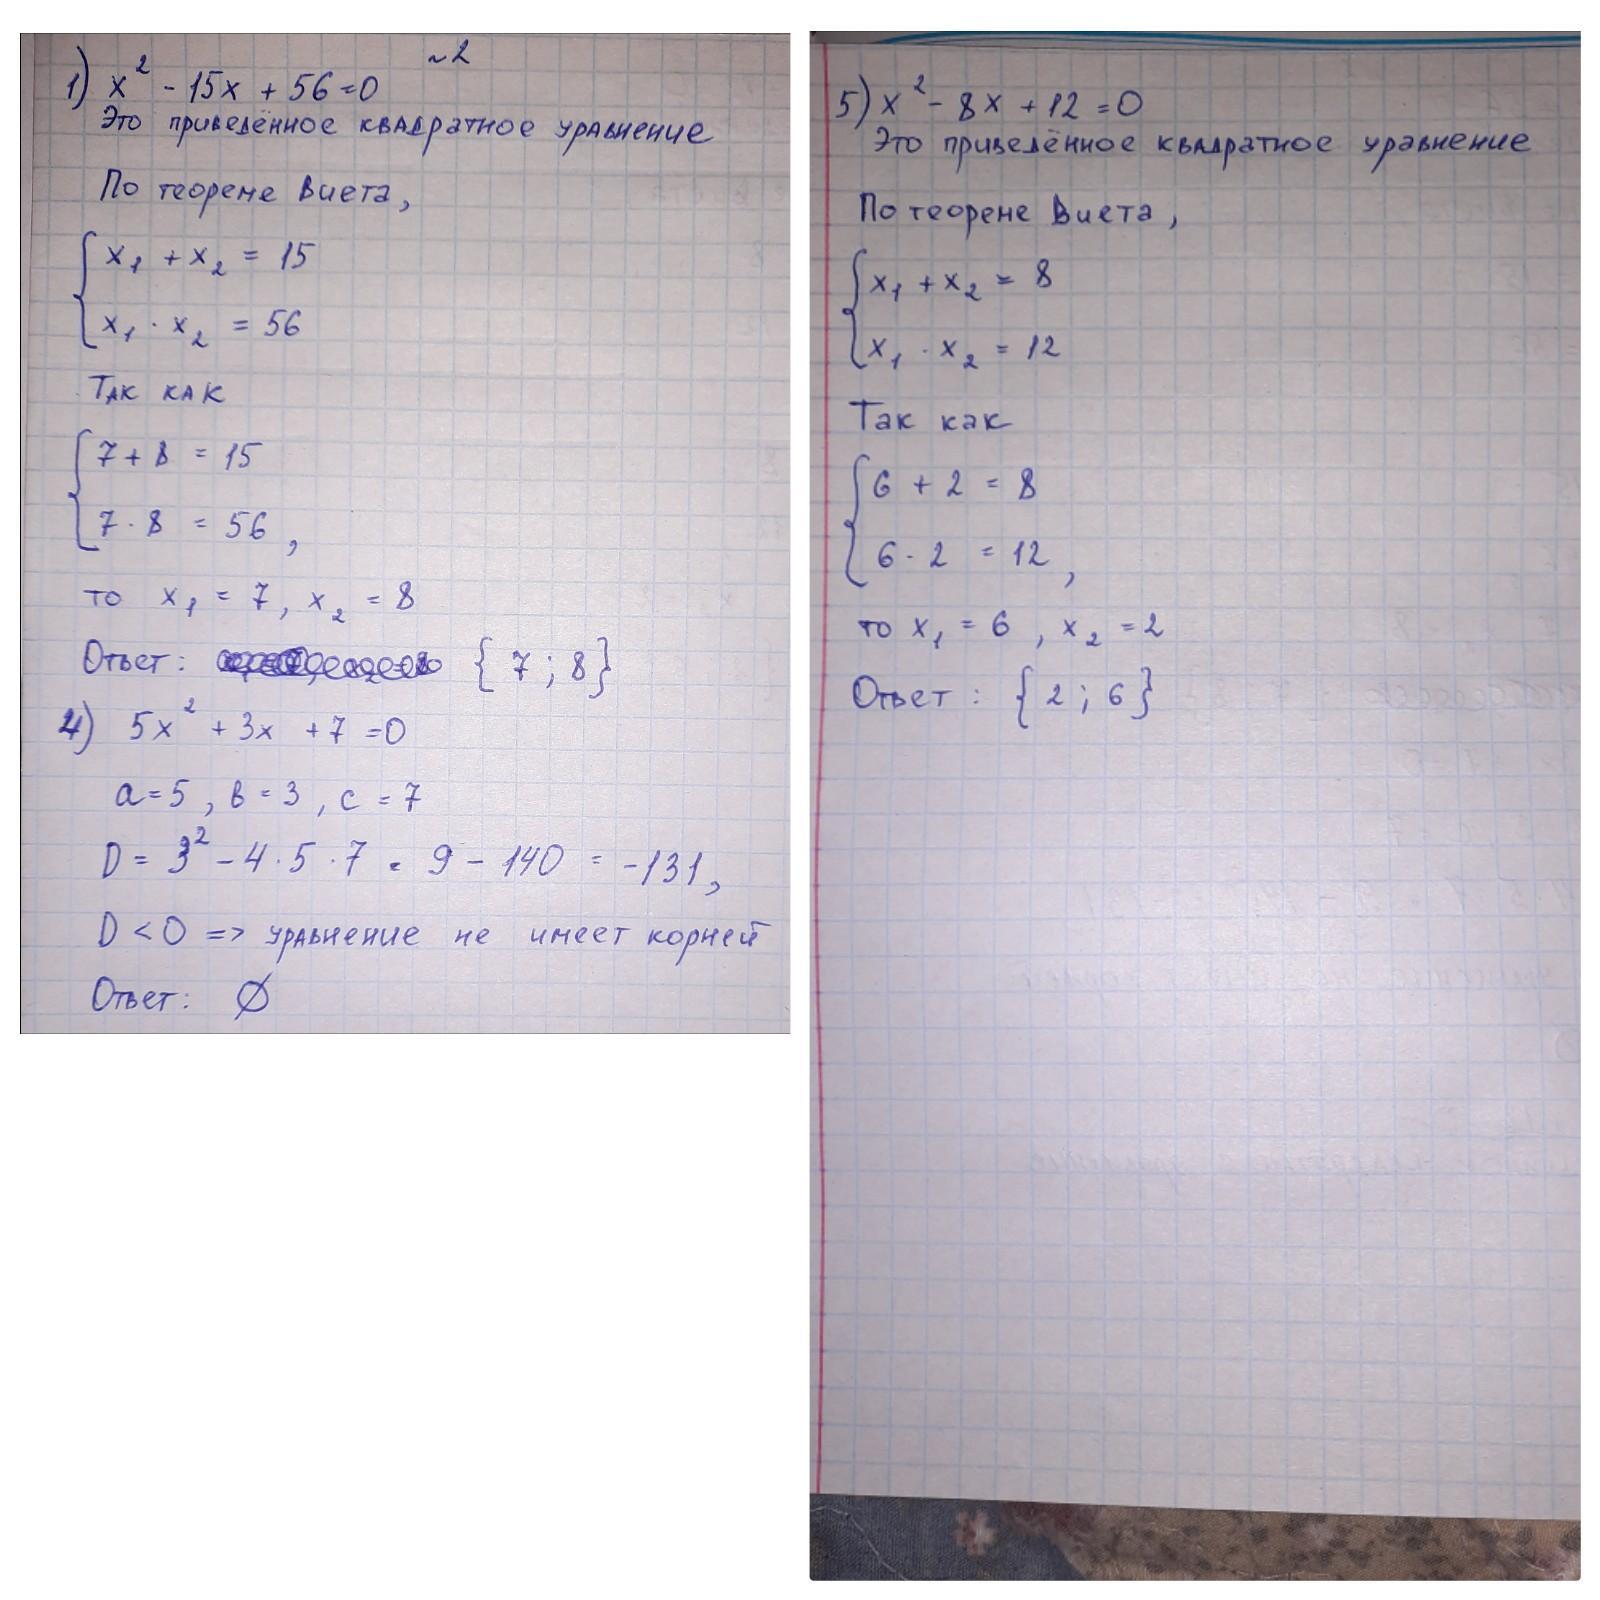 ~2
1) x² - 15x + 56 = 0
Это приведённое квадратное уравнение
По теореме Виета,
x₁ + x₂ = 15
x₁ · x₂ = 56
Так как
7 + 8 = 15
7 · 8 = 56 ,
то x₁ = 7, x₂ = 8
Ответ: { 7 ; 8 }
4) 5x² + 3x + 7 = 0
a = 5 , в = 3 , c = 7
D = 3² - 4 · 5 · 7 = 9 - 140 = -131,
D < 0 => уравнение не имеет корней
Ответ: ∅
5) x² - 8x + 12 = 0
Это приведённое квадратное уравнение
По теореме Виета ,
x₁ + x₂ = 8
x₁ · x₂ = 12
Так как
6 + 2 = 8
6 · 2 = 12 ,
то x₁ = 6 , x₂ = 2
Ответ : { 2 ; 6 }